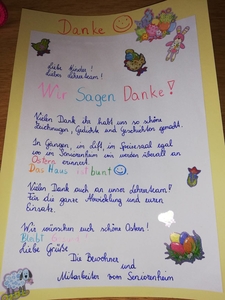 Danke
Liebe Kinder!
Liebes Lehrerteam!
Wir Sagen Danke!
Vielen Dank ihr habt uns so schöne
Zeichnungen, Gedichte und Geschichten gemalt.
In Gängen, im Lift, im Speisesaal egal
wo im Seniorenheim wir werden überall an
Ostern erinnert.
Das Haus ist bunt
Vielen Dank auch an unser Lehrerteam!
Für die ganze Abwicklung und euren
Einsatz.
Wir wünschen euch schöne Ostern!
Bleibt
Liebe Grüße
Die Bewohner
und
Mitarbeiter vom Seniorenheim